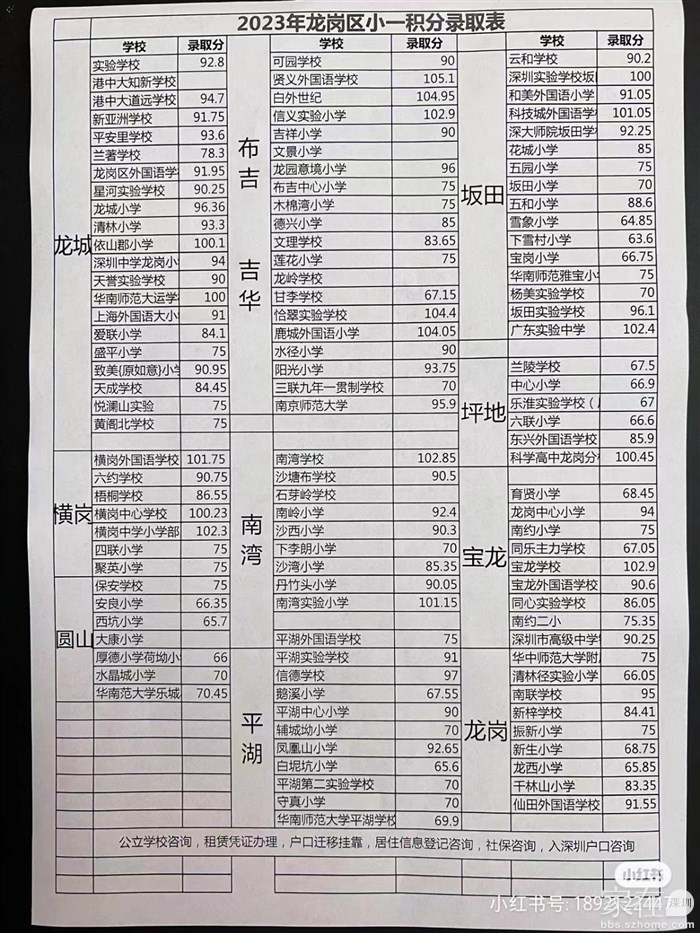 2023年龙岗区小一积分录取表
学校 录取分
龙城
实验学校 92.8
港中大知新学校
港中大道远学校 94.7
新亚洲学校 91.75
平安里学校 93.6
兰著学校 78.3
龙岗区外国语学 91.95
星河实验学校 90.25
龙城小学 96.36
清林小学 93.3
依山郡小学 100.1
深圳中学龙岗小 94
天誉实验学校 90
华南师范大运学 100
上海外国语大小 91
爱联小学 84.1
盛平小学 75
致美(原如意)小学 90.95
天成学校 84.45
悦澜山实验 75
黄阁北学校 75
横岗
横岗外国语学校 101.75
六约学校 90.75
梧桐学校 86.55
横岗中心学校 100.23
横岗中学小学部 102.3
四联小学 75
聚英小学 75
圆山
保安学校 75
安良小学 66.35
西坑小学 65.7
大康小学
厚德小学荷坳小 66
水晶城小学 70
华南范大学乐城 70.45
学校 录取分
布吉 吉华
可园学校 90
贤义外国语学校 105.1
白外世纪 104.95
信义实验小学 102.9
吉祥小学 90
文景小学
龙园意境小学 96
布吉中心小学 75
木棉湾小学 75
德兴小学 85
文理学校 83.65
莲花小学 75
龙岭学校
甘李学校 67.15
怡翠实验学校 104.4
鹿城外国语小学 104.05
水径小学 90
阳光小学 93.75
三联九年一贯制学校 70
南京师范大学 95.9
南湾
南湾学校 102.85
沙塘布学校 90.5
石芽岭学校
南岭小学 92.4
沙西小学 90.3
下李朗小学 70
沙湾小学 85.35
丹竹头小学 90.05
南湾实验小学 101.15
平湖外国语学校 75
平湖
平湖实验学校 91
信德学校 97
鹅溪小学 67.55
平湖中心小学 90
辅城坳小学 70
凤凰山小学 92.65
白坭坑小学 65.6
平湖第二实验学校 70
守真小学 70
华南师范大学平湖学校 69.9
学校 录取分
坂田
云和学校 90.2
深圳实验学校坂 100
和美外国语小学 91.05
科技城外国语学 101.05
深大师院坂田学 92.25
花城小学 85
五园小学 75
坂田小学 70
五和小学 88.6
雪象小学 64.85
下雪村小学 63.6
宝岗小学 66.75
华南师范雅宝小 75
杨美实验学校 70
坂田实验学校 96.1
广东实验中学 102.4
坪地
兰陵学校 67.5
中心小学 66.9
乐淮实验学校 67
六联小学 66.6
东兴外国语学校 85.9
科学高中龙岗分 100.45
宝龙
育贤小学 68.45
龙岗中心小学 94
南约小学 75
同乐主力学校 67.05
宝龙学校 102.9
宝龙外国语学校 90.6
同心实验学校 86.05
南约二小 75.35
深圳市高级中学 90.25
龙岗
华中师范大学附 75
清林径实验小学 66.05
南联学校 95
新梓学校 84.41
振新小学 75
新生小学 68.75
龙西小学 65.85
千林山小学 83.35
仙田外国语学校 91.55
公立学校咨询，租赁凭证办理，户口迁移挂靠，居住信息登记咨询，社保咨询，入深圳户口咨询
小红书
小红书号:
家在
深圳
bbs.szhome.com